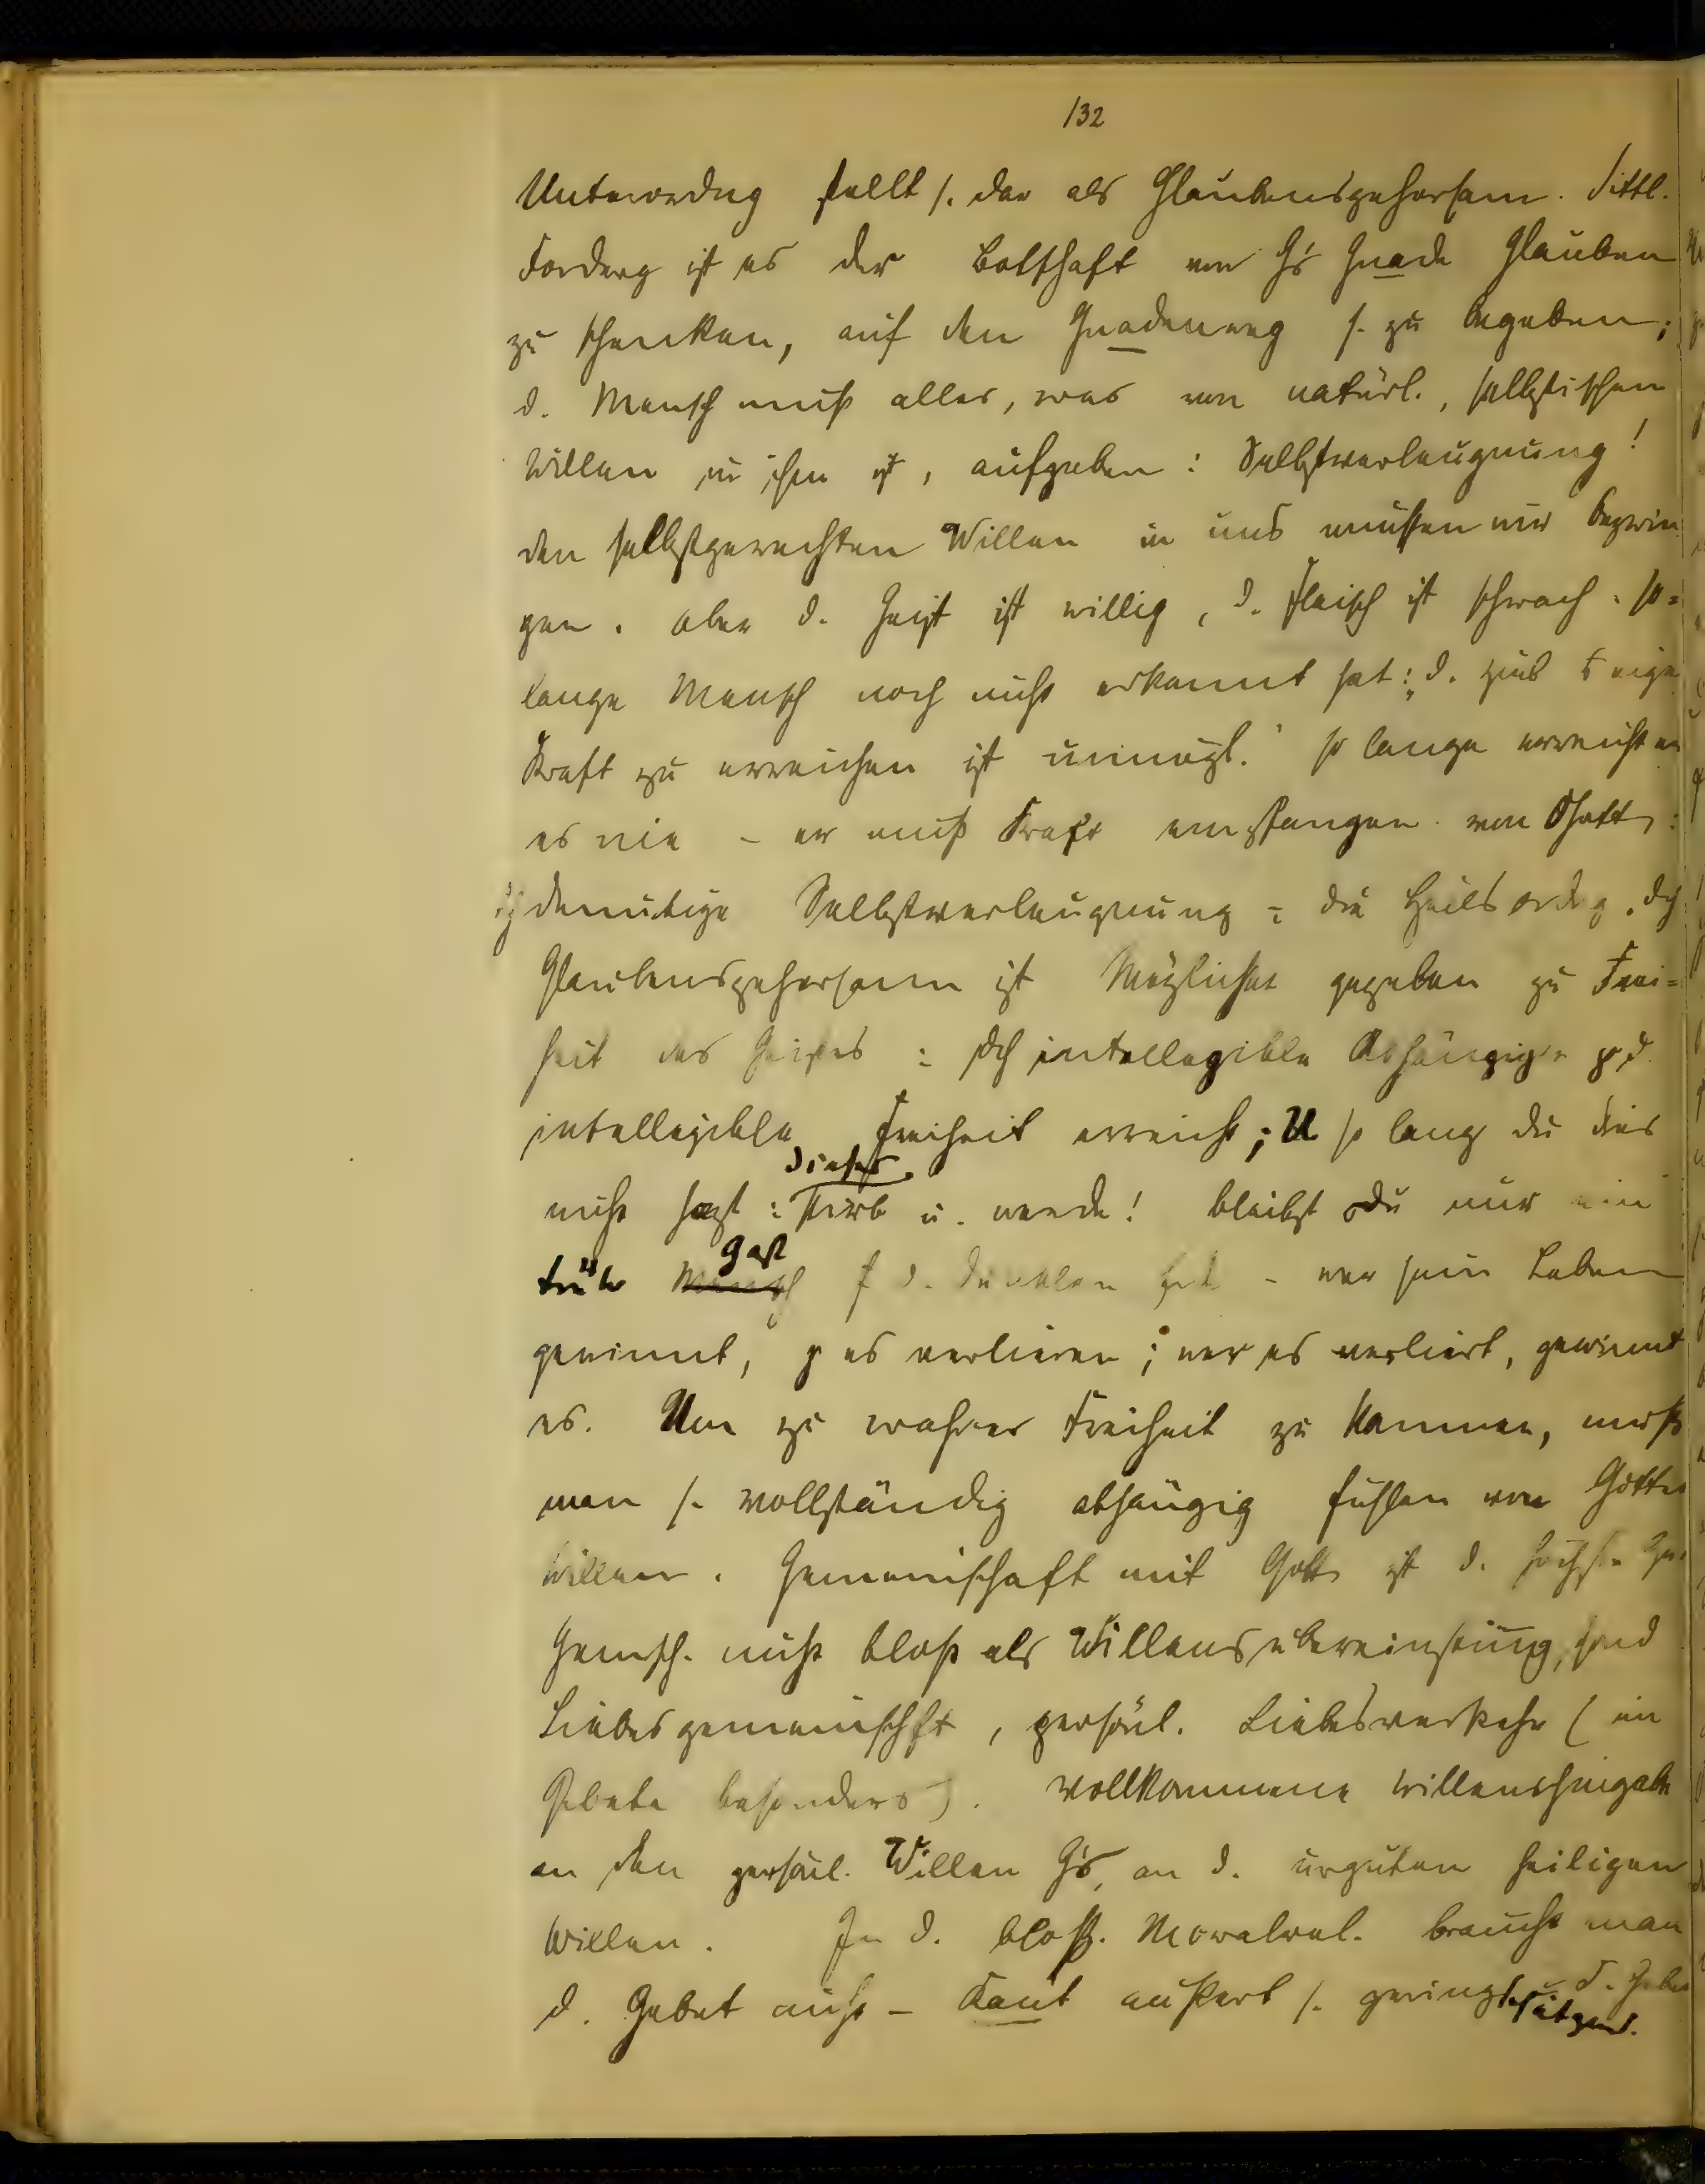 132
Unterordng stellt s. dar als Glaubensgehorsam. Sittl.
Forderg ist es der Botschaft von G's Gnade Glauben
zu schenken, auf den Gnadenweg s. zu begeben;
d. Mensch muß alles, was von natürl., selbstischen
Willen in ihm ist, aufgeben: Selbstverleugnung!
den selbstgerechten Willen in uns müssen wir bezwin
gen. aber d. Geist ist willig, d. Fleisch ist schwach. so=
lange Mensch noch nicht erkannt hat: „d. Ziel eigne
Kraft zu erreichen ist unmögl." so lange erreicht er
es nie – er muß Kraft empfangen von Gott:
demütige Selbstverleugnung = die Heilsordg. dch
Glaubensgehorsam ist Möglichkt gegeben zu Frei=
heit des Geistes: dch intellegible Abhängigk d.
intellegible Freiheit erreicht; U so lang du dies
nicht hast: dieses Stirb u. werde! bleibst du nur ein
trüber Mensch Gast d. dunklen Erde – wer sein Leben
gewinnt, es verlieren; wer es verliert, gewinnt
es. Um zu wahrer Freiheit zu kommen, muß
man s. vollständig abhängig fühlen von Gottes
Willen. Gemeinschaft mit Gott ist d. höchste
Gemsch. nicht bloß als Willensübereinstimg, sond
Liebesgemeinschft, persönl. Liebesverkehr (im
Gebete besonders). vollkommene Willenshingabe
an den persönl. Willen G's, an d. urguten heiligen
Willen. In d. bloß. Moralrel. braucht man
d. Gebet nicht – Kant äußert s. geringschätzend. ü. d. Gebet